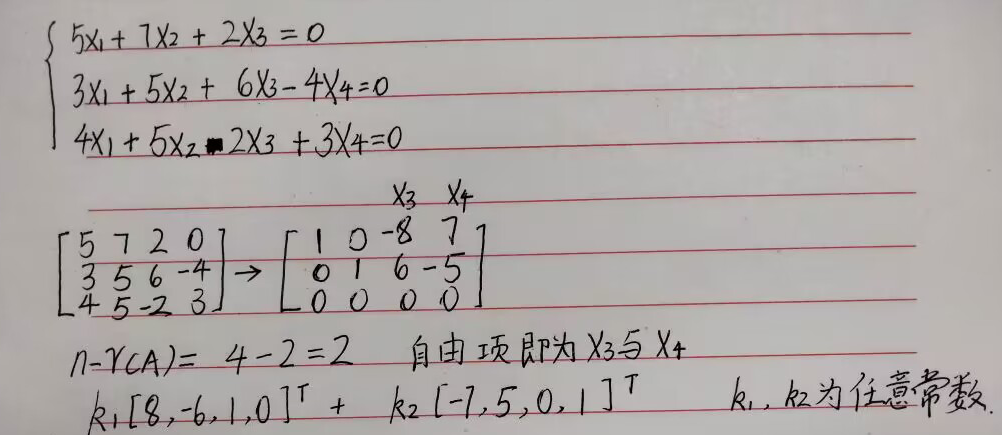 5x₁ + 7x₂ + 2x₃ = 0
3x₁ + 5x₂ + 6x₃ - 4x₄ = 0
4x₁ + 5x₂ - 2x₃ + 3x₄ = 0
x₃ x₄
[5 7 2 0] [1 0 -8 7]
[3 5 6 -4] → [0 1 6 -5]
[4 5 -2 3] [0 0 0 0]
n-r(A) = 4-2=2 自由项即为 x₃与 x₄
k₁[8,-6,1,0]ᵀ + k₂[-7,5,0,1]ᵀ k₁, k₂为任意常数.